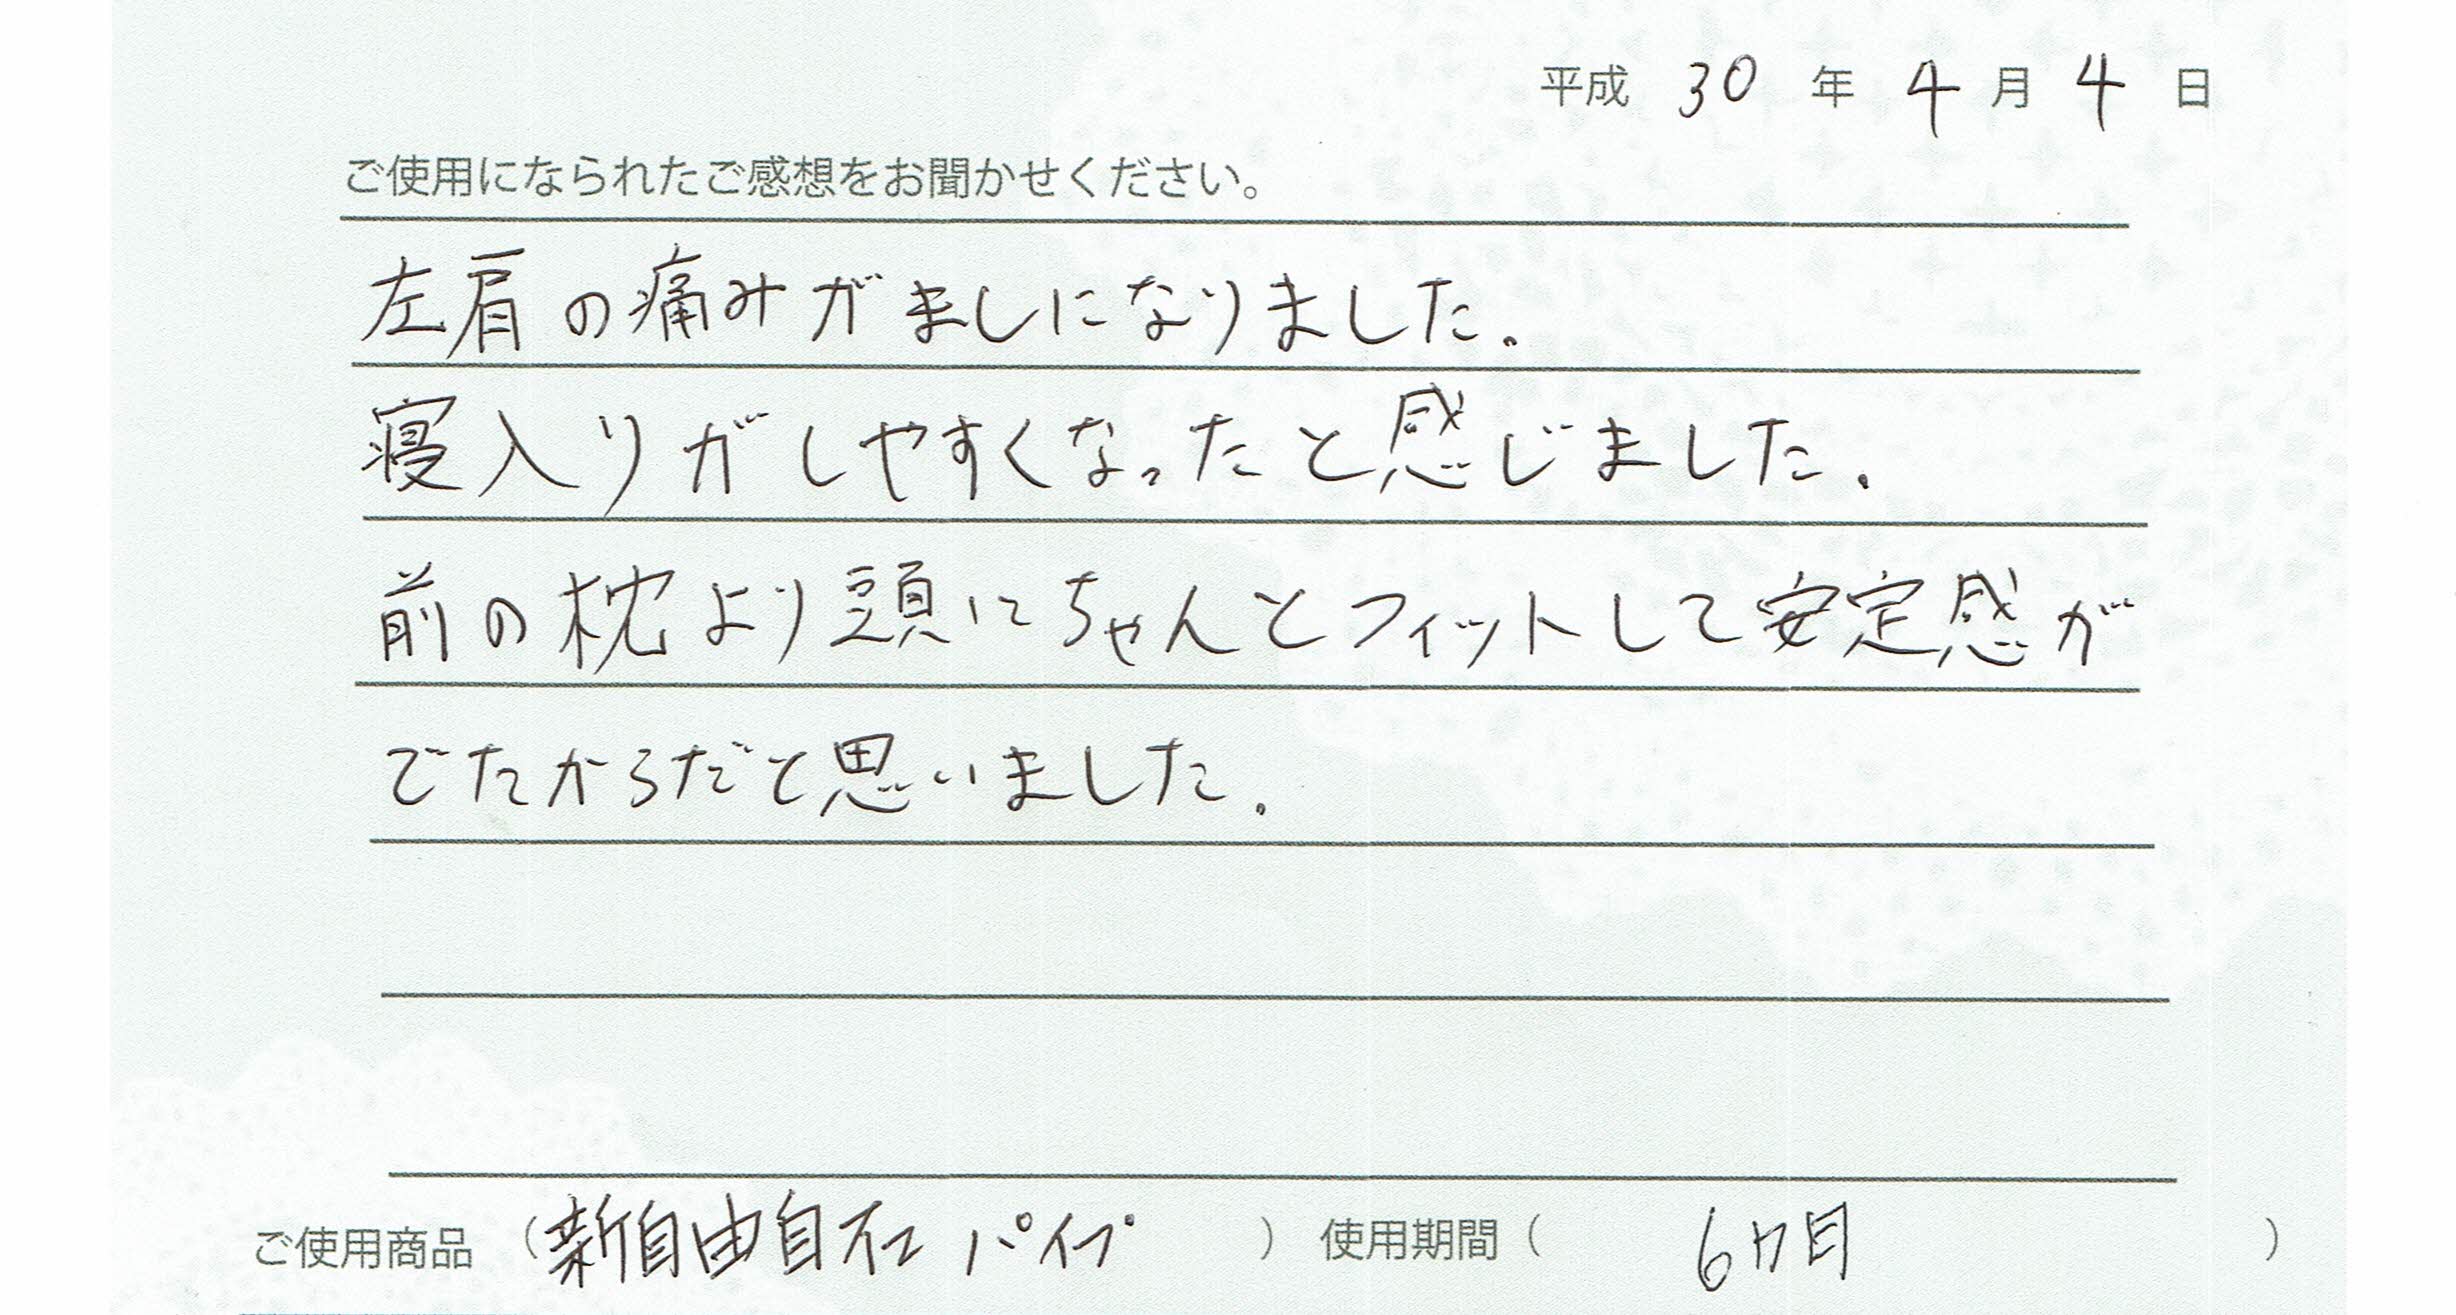 平成 30 年 4 月 4 日
ご使用になられたご感想をお聞かせください。
左肩の痛みがましになりました.
寝入りがしやすくなったと感じました.
前の枕より頭にちゃんとフィットして安定感が
でたからだと思いました.
ご使用商品 (新自由自在 パイプ ) 使用期間 ( 6ヶ月 )